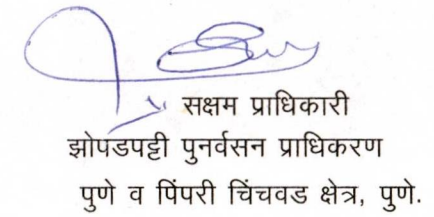 सक्षम प्राधिकारी
झोपडपट्टी पुनर्वसन प्राधिकरण
पुणे व पिंपरी चिंचवड क्षेत्र, पुणे.